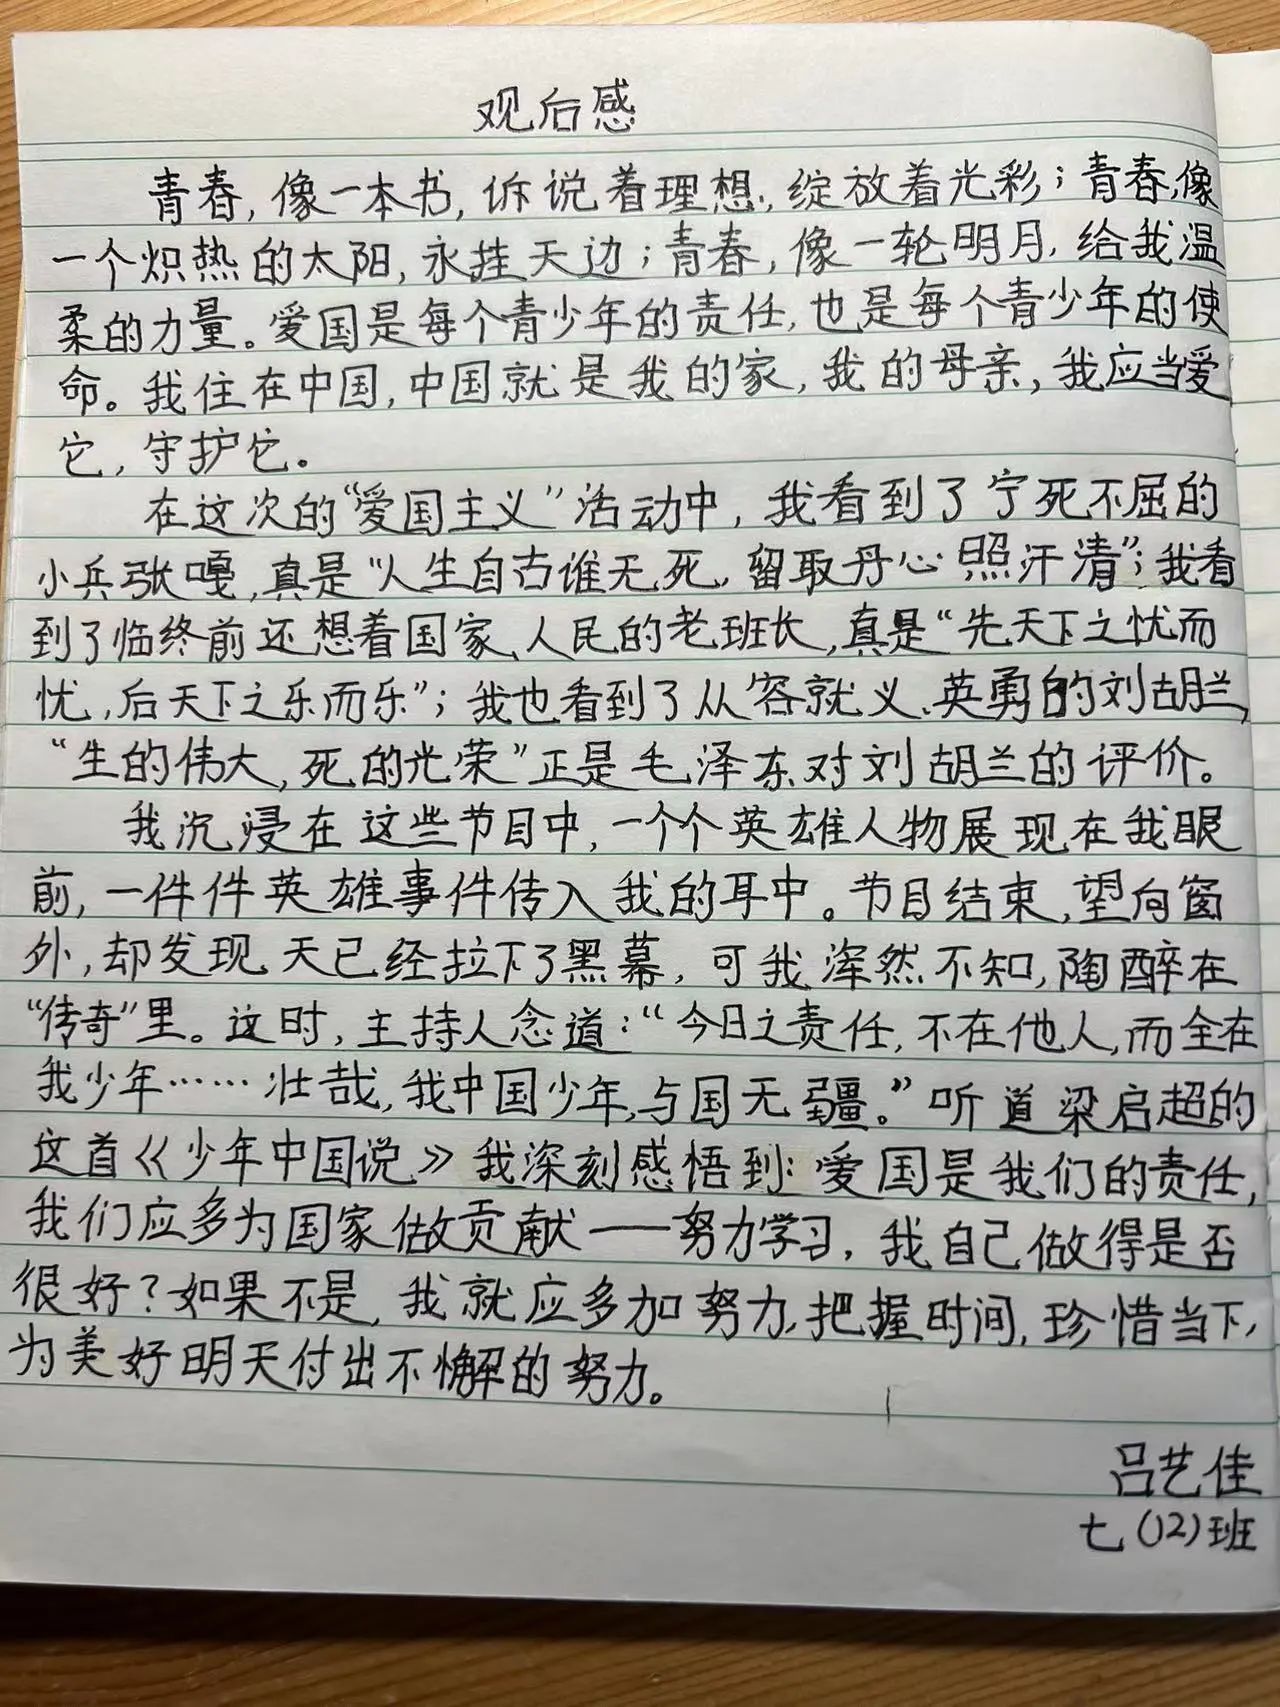 观后感
青春，像一本书，诉说着理想，绽放着光彩；青春，像
一个炽热的太阳，永挂天边；青春，像一轮明月，给我温
柔的力量。爱国是每个青少年的责任，也是每个青少年的使
命。我住在中国，中国就是我的家，我的母亲，我应当爱
它，守护它。
在这次的“爱国主义”活动中，我看到了宁死不屈的
小兵张嘎，真是“人生自古谁无死，留取丹心照汗清”；我看
到了临终前还想着国家、人民的老班长，真是“先天下之忧而
忧，后天下之乐而乐”；我也看到了从容就义、英勇的刘胡兰，
“生的伟大，死的光荣”正是毛泽东对刘胡兰的评价。
我沉浸在这些节目中，一个个英雄人物展现在我眼
前，一件件英雄事件传入我的耳中。节目结束，望向窗
外，却发现天已经拉下了黑幕，可我浑然不知，陶醉在
“传奇”里。这时，主持人念道：“今日之责任，不在他人，而全在
我少年……壮哉，我中国少年，与国无疆。”听道梁启超的
这首《少年中国说》我深刻感悟到：爱国是我们的责任，
我们应多为国家做贡献——努力学习，我自己做得是否
很好？如果不是，我就应多加努力，把握时间，珍惜当下，
为美好明天付出不懈的努力。
吕艺佳
七（12）班